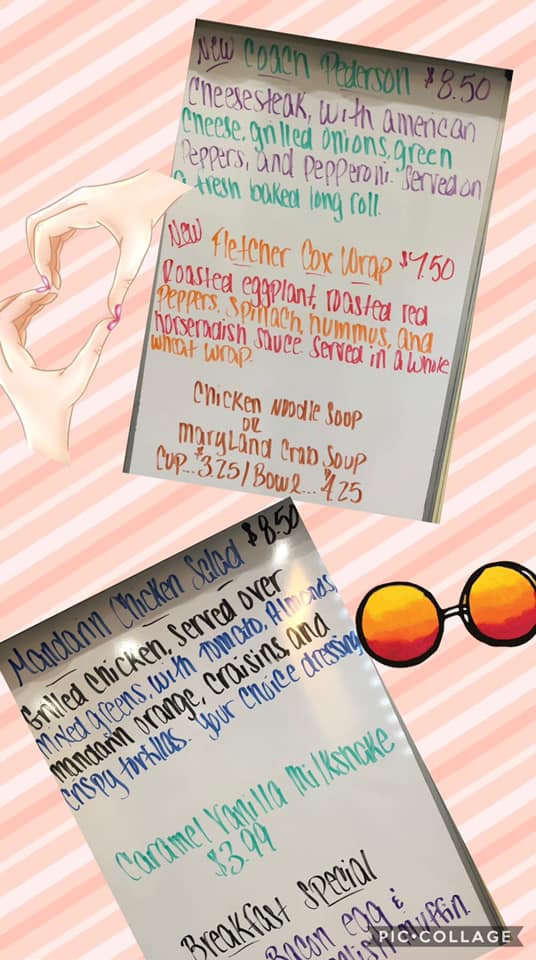 New Coach Pederson $8.50
Cheesesteak, with american
Cheese, grilled onions, green
Peppers, and Pepperoni. Served on
a fresh baked long roll.
New Fletcher Cox Wrap $7.50
Roasted eggplant, roasted red
Peppers, Spinach, hummus, and
horseradish sauce. Served in a whole
wheat wrap.
Chicken Noodle Soup
OR
Maryland Crab Soup
Cup... $3.25/Bowl... $4.25
Mandarin Chicken Salad $8.50
Grilled Chicken, Served over
Mixed greens, with Tomato, Almonds,
mandarin orange, Craisins, and
Crispy tortillas. Your Choice dressing
Caramel Vanilla Milkshake
$3.99
Breakfast Special
Bacon egg &
muffin
PIC•COLLAGE